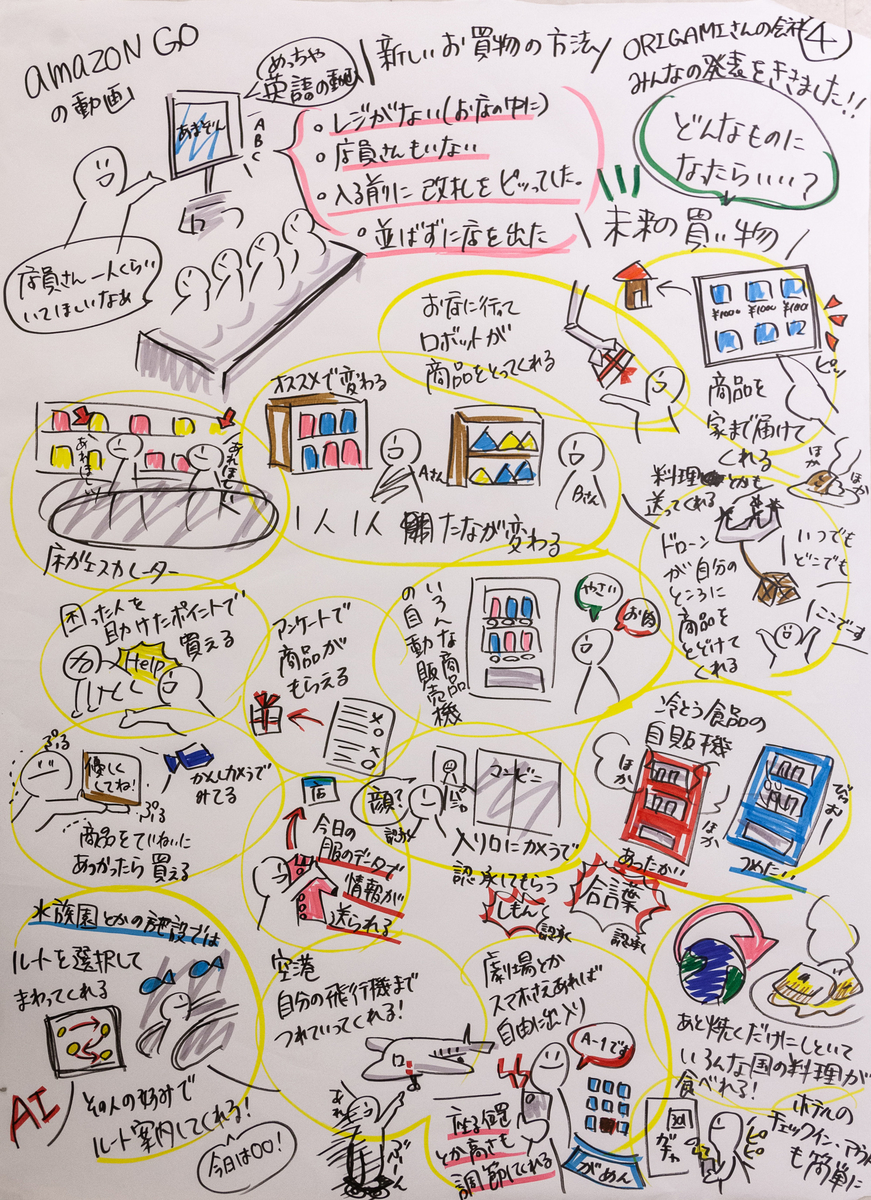 amazon GO
の動画
めっちゃ
英語の動画
あまぞん
A
B
C
新しいお買物の方法
ORIGAMIさんの会社
④
みんなの発表をききました!!
・レジがない(お店の中に)
・店員さんもいない
・入る前に改札をピッってした。
・並ばずに店を出た
どんなものに
なったらいい?
未来の買い物
店員さん一人くらい
いてほしいなぁ
お店に行って
ロボットが
商品をとってくれる
¥1000 ¥1000 ¥1000
ピッ
商品を
家まで届けて
くれる
オススメで変わる
Aさん
Bさん
1人1人 たなが変わる
あれほしい
あれほしい
床がエスカレーター
料理とかも
送ってくれる
ほか
ほか
ドローン
が自分の
ところに
商品を
とどけて
くれる
いつでも
どこでも
ここでーす
困った人を
助けたポイントで
買える
Help
アンケートで
商品が
もらえる
いろんな商品
の自動販売機
やさい
お肉
ぷる
優しく
してね!
ぷる
かんしカメラで
みてる
商品をていねいに
あつかったら買える
店
今日の
服のデータで
情報が
送られる
顔?
認承
コンビニ
入り口にカメラで
認承してもらう
しもん
認承
合言葉
認承
冷とう食品の
自販機
ほか
ほか
あったかい
つめたい
水族園とかの施設では
ルートを選択して
まわってくれる
AI
その人の好みで
ルート案内してくれる!
今日は〇〇!
空港
自分の飛行機まで
つれていってくれる!
あれ
ぶーん
劇場とか
スマホさえあれば
自由に出入り
A-1です
座る位置
とか高さも
調節してくれる
がめん
あと焼くだけにしといて
いろんな国の料理が
食べれる!
ガチャ
ピピピ
ホテルの
チェックイン、アウト
も簡単に